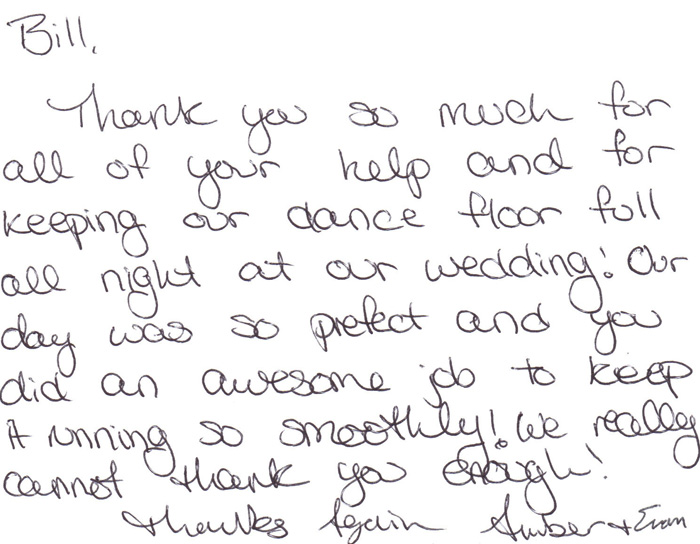 Bill,
Thank you so much for
all of your help and for
keeping our dance floor full
all night at our wedding! Our
day was so prefect and you
did an awesome job to keep
it running so smoothly! We really
cannot thank you enough!
thanks Again Amber + Evan